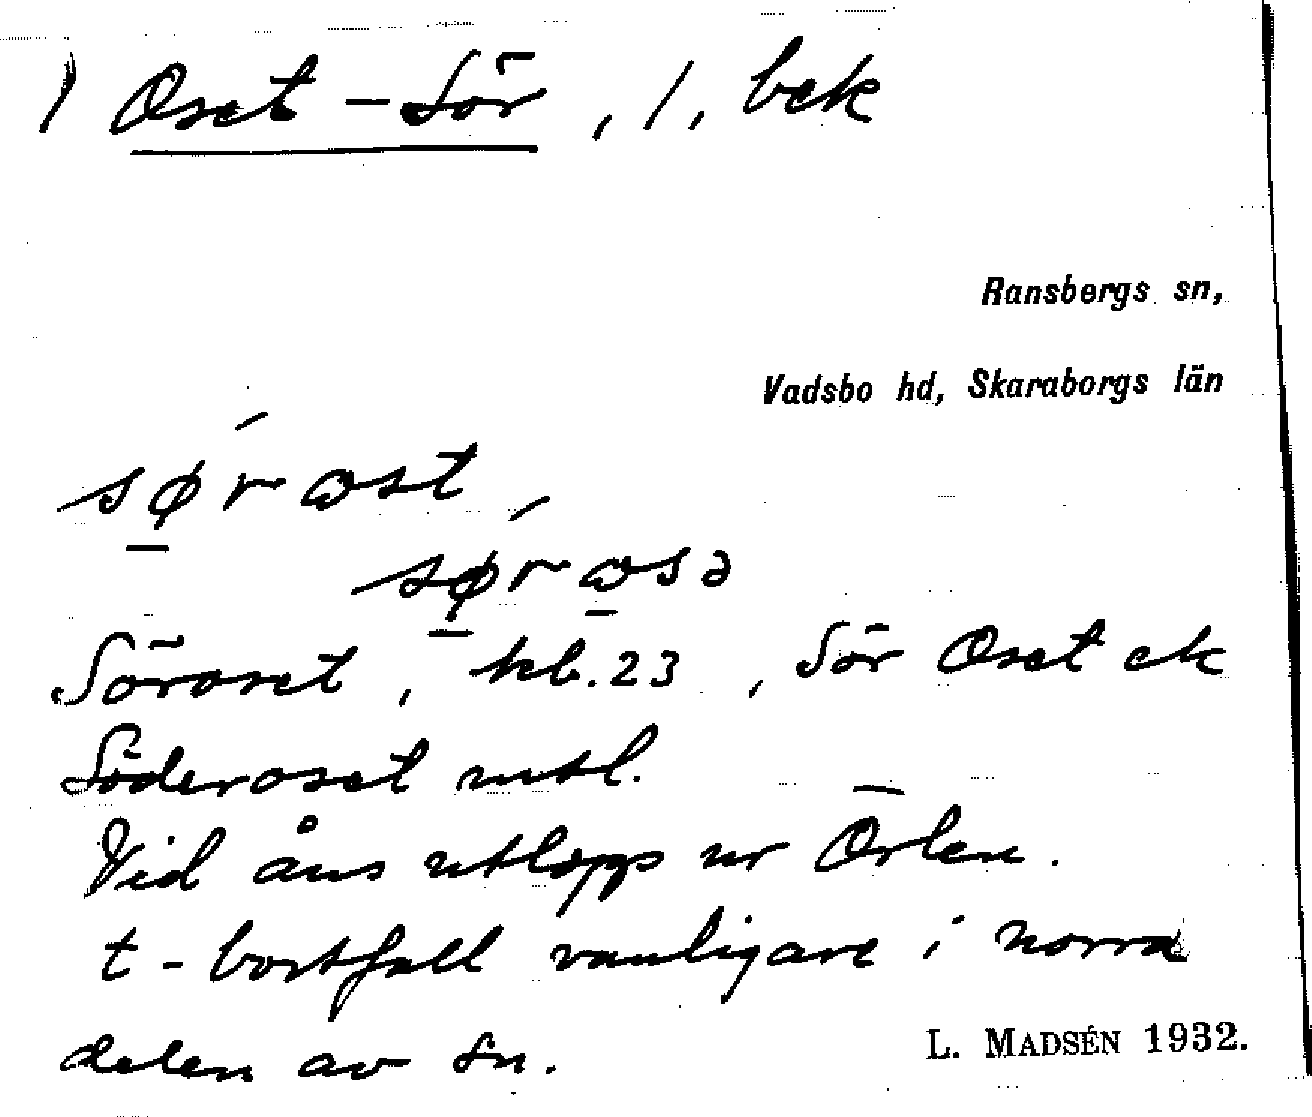 ) Oset – Sör, 1, bek
Ransbergs sn,
Vadsbo hd, Skaraborgs län
sørɷst,
sørɷsə
Söroset, kb. 23, Sör Oset ek
Söderoset mtl.
Vid åns utlopp ur Örlen.
t-bortfall vanligare i norra
delen av sn.
L. MADSÉN 1932.